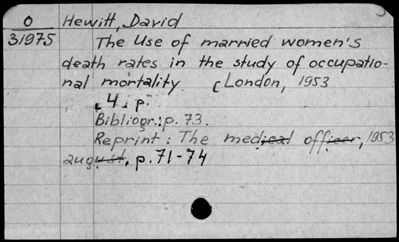 O Hewitt, David
31975 The Use of married women's
death rates in the study of occupatio-
nal mortality [London, 1953
4 p.
Bibliogr.: p. 73.
Reprint: The medical officer, 1953
august, p. 71-74